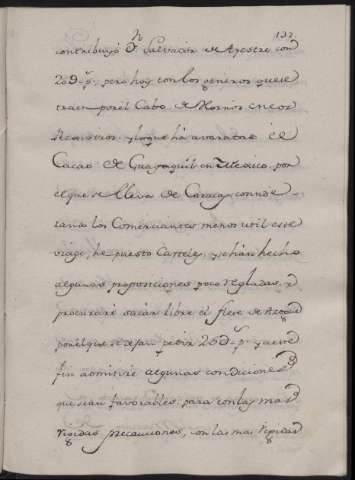 132
contribuyó Dn Salvador de Apestre con
20D ps. pero hoy con los generos que se
traen por el Cabo de Hornos en los
Registros, y lo que há avaratado el
Cacao de Guayaquil en Mexico, por
el que se lleva de Caracas, conside-
raran los Comerciantes menos util ese
viage, he puesto Carteles, y se han hecho
algunas proposiciones poco regladas, y
procuraré sacar libre el flete de Azogue
por el que se dejan pedir 25D ps. y a este
fin admitiré algunas condiciones
que sean favorables para con las mas
rigidas precauciones, con las mas rigidas